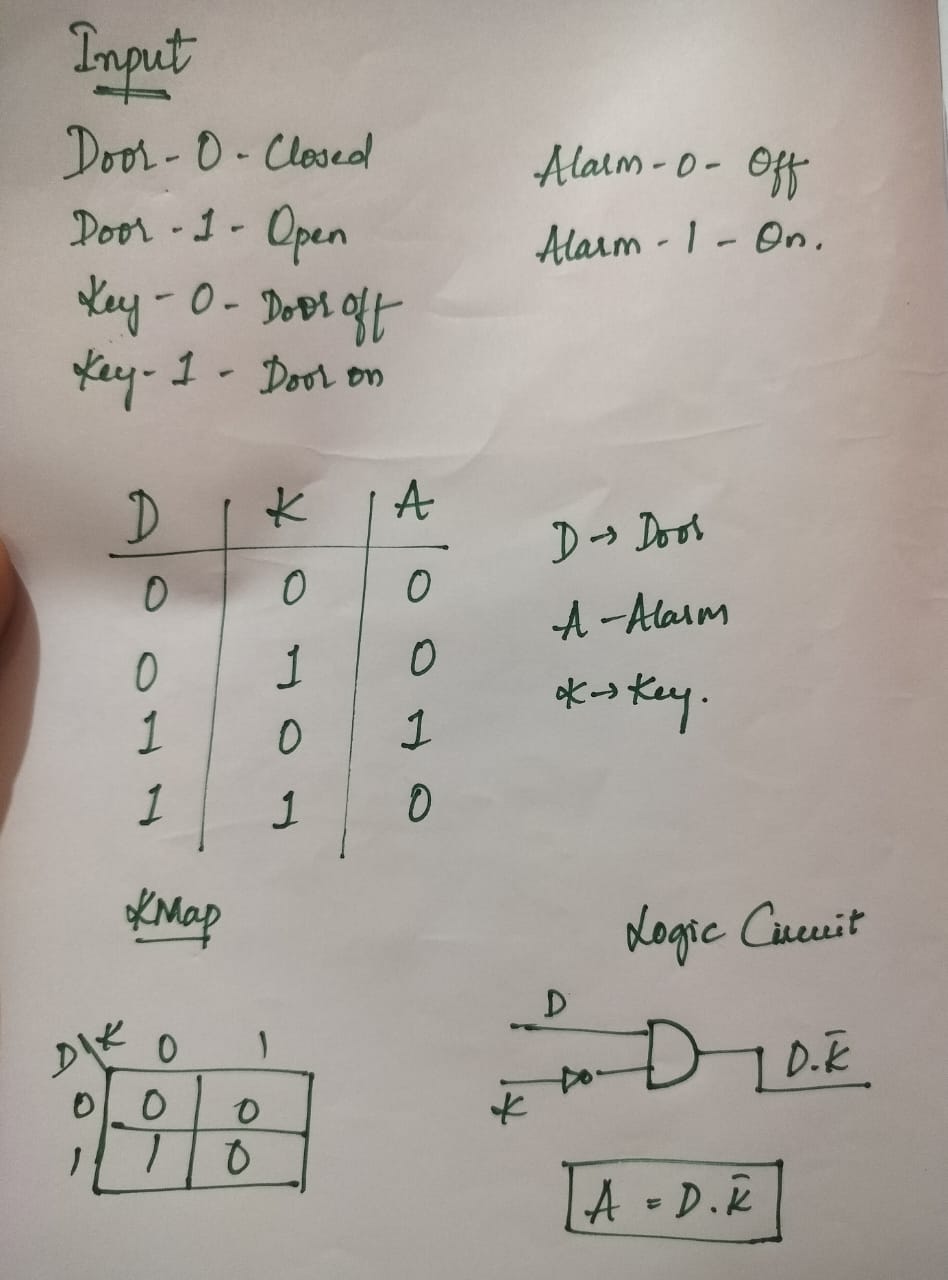 Input
Door - 0 - Closed
Door - 1 - Open
Key - 0 - Door off
Key - 1 - Door on
Alarm - 0 - Off
Alarm - 1 - On.
D K A
0 0 0
0 1 0
1 0 1
1 1 0
D → Door
A - Alarm
K → Key.
KMap
D\K 0 1
0 0 0
1 1 0
Logic Circuit
D
K
D.K̅
A = D.K̅